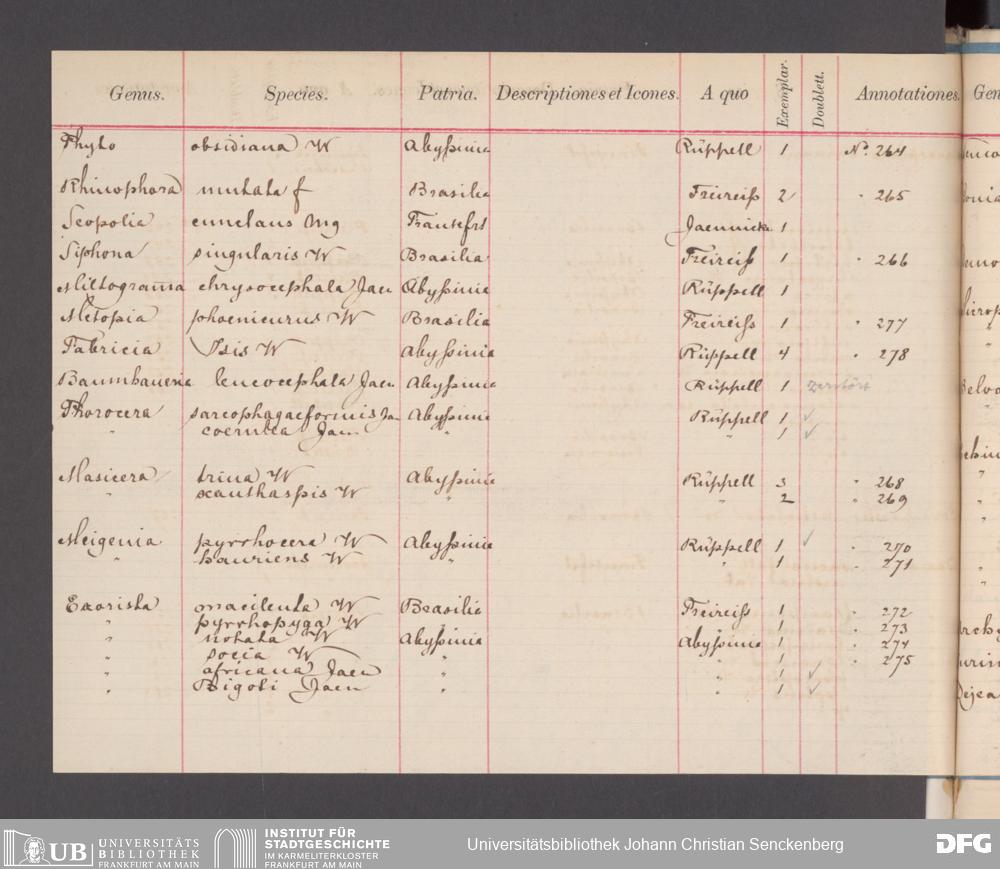 Genus. Species. Patria. Descriptiones et Icones. A quo Exemplar. Doublett. Annotationes. Gen
Phyto obsidiana W Abyßinia Rüppell 1 No. 264
Rhinophora mutata f Brasilia Freireiß 2 " 265
Scopolia cunctans Mg Frankfrt Jaennicke 1
Siphona singularis W Brasilia Freireiß 1 " 266
Miltogramma chrysocephala Jaen Abyßinia Rüppell 1
Metopia phoenicurus W Brasilia Freireiß 1 " 277
Fabricia Isis W Abyßinia Rüppell 4 " 278
Baumhaueria leucocephala Jaen Abyßinia Rüppell 1 zerstört
Phorocera sarcophagaeformis Jae Abyßinia Rüppell 1 ✓
" coerulea Jaen " " 1 ✓
Masicera trina W Abyßinia Rüppell 3 " 268
xanthaspis W " " 2 " 269
Meigenia pyrrhocera W Abyßinia Rüppell 1 ✓ " 270
" hauriens W " " 1 " 271
Exorista macilenta W Brasilia Freireiß 1 " 272
" pyrrhopyga W " " 1 " 273
" notata W Abyßinia Abyßinia 1 " 274
" socia W " " 1 " 275
" africana Jaen " " 1 ✓
" Bigoti Jaen " " 1 ✓
UB UNIVERSITÄTS
BIBLIOTHEK
FRANKFURT AM MAIN
INSTITUT FÜR
STADTGESCHICHTE
IM KARMELITERKLOSTER
FRANKFURT AM MAIN
Universitätsbibliothek Johann Christian Senckenberg
DFG